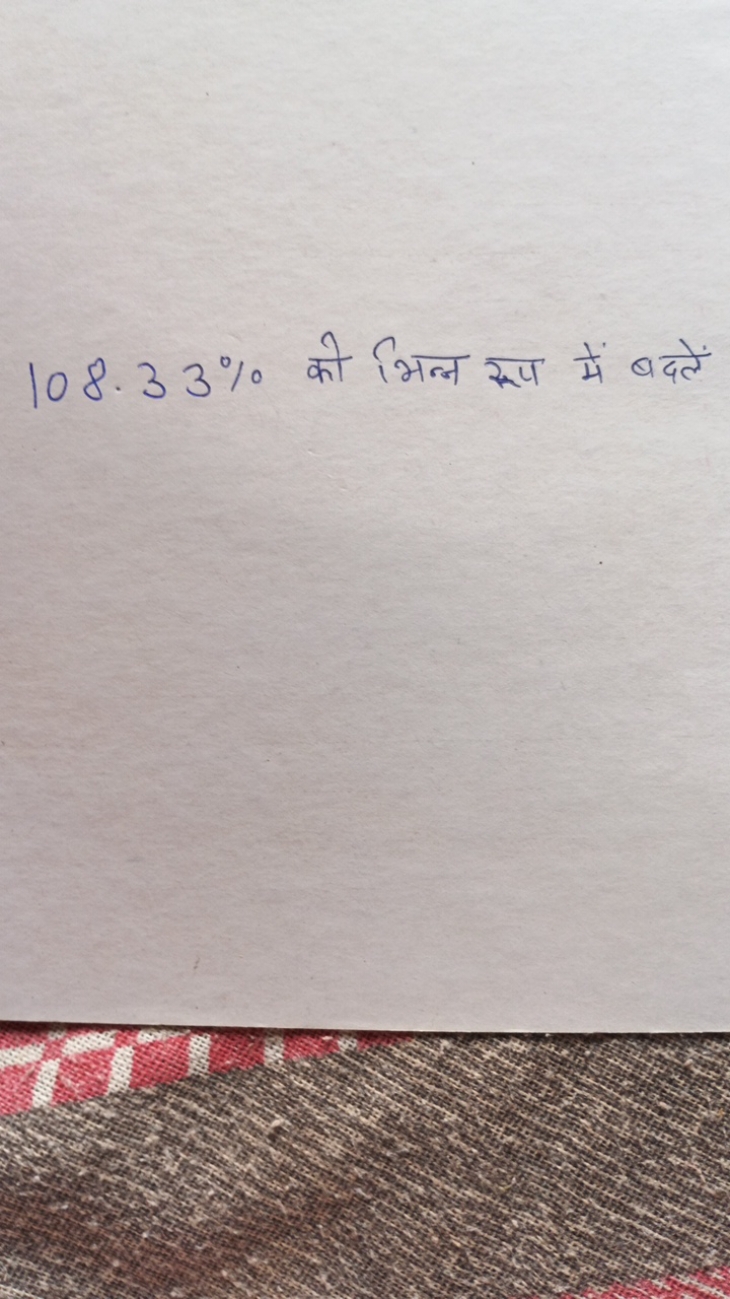 108.33% को भिन्न रूप में बदलें